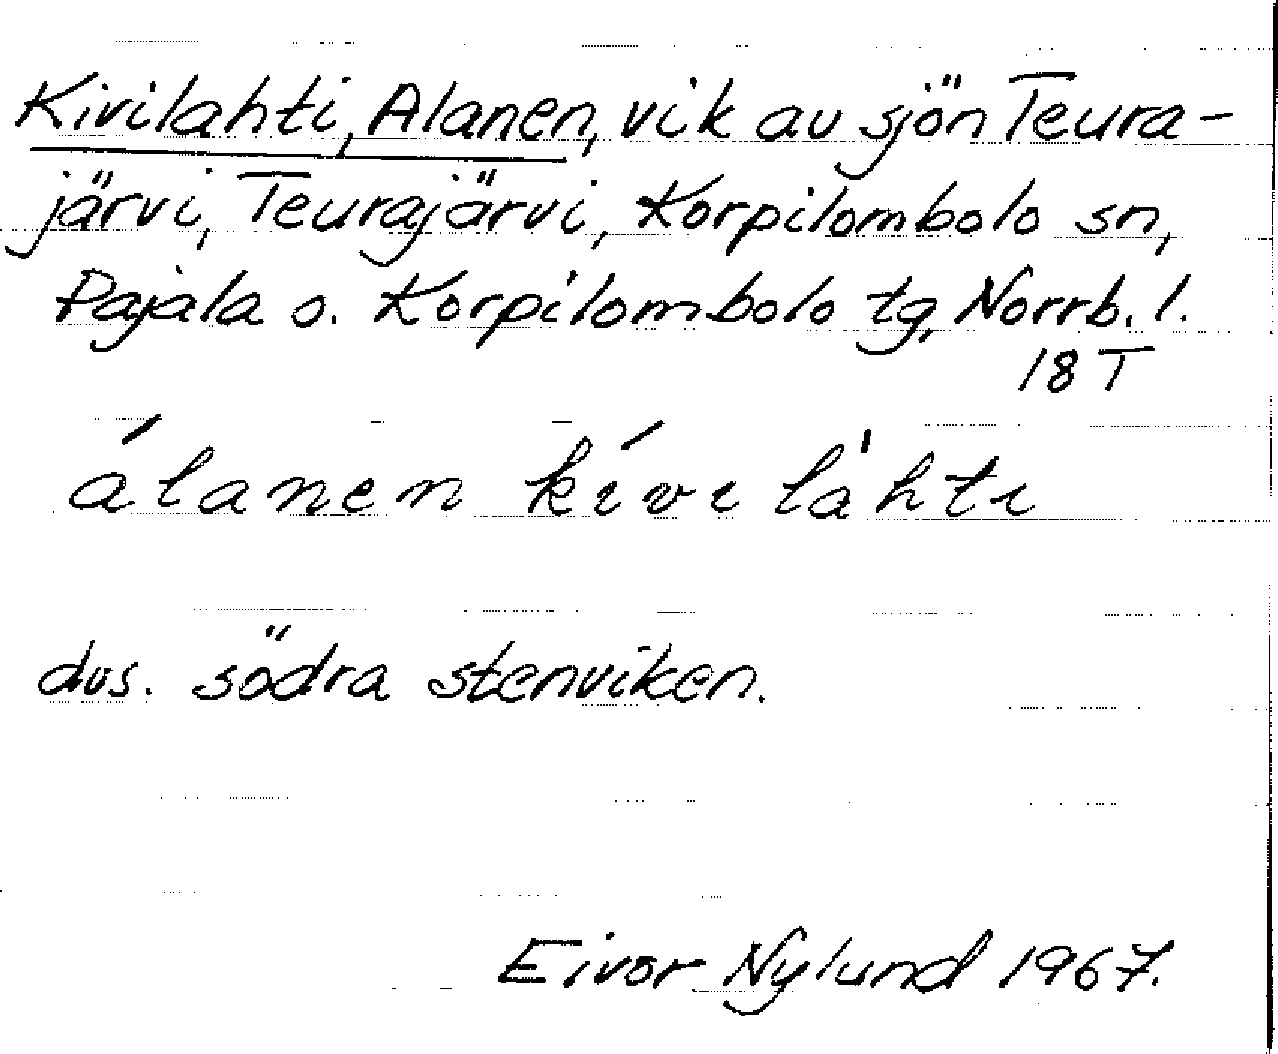 Kivilahti, Alanen, vik av sjön Teura-
järvi, Teurajärvi, Korpilombolo sn,
Pajala o. Korpilombolo tg, Norrb. l.
18 T
álanen kívilàhti
dvs. södra stenviken.
Eivor Nylund 1967.